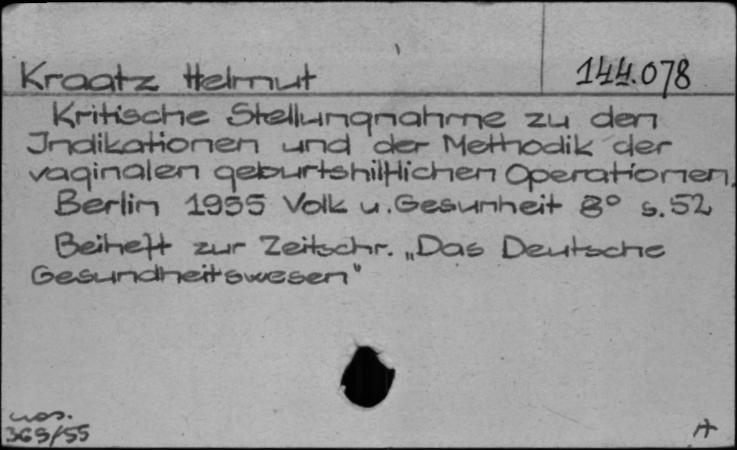 Kraatz Helmut
144.078
Kritische Stellungnahme zu den
Indikationen und der Methodik der
vaginalen geburtshilflichen Operationen.
Berlin 1955 Volk u. Gesunheit 8° s. 52
Beiheft zur Zeitschr. „Das Deutsche
Gesundheitswesen"
369/55
A